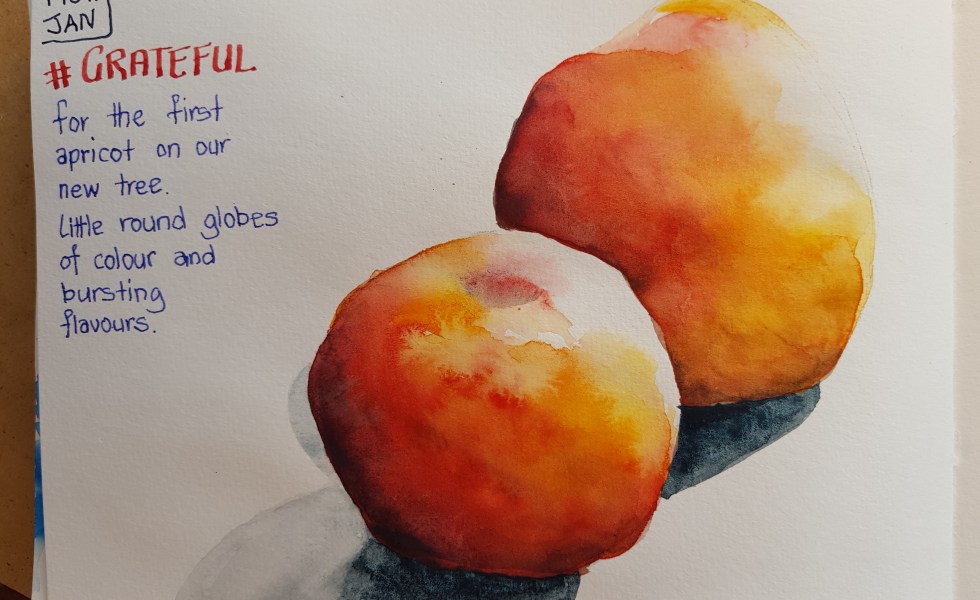 JAN
# GRATEFUL
for the first
apricot on our
new tree.
Little round globes
of colour and
bursting
flavours.